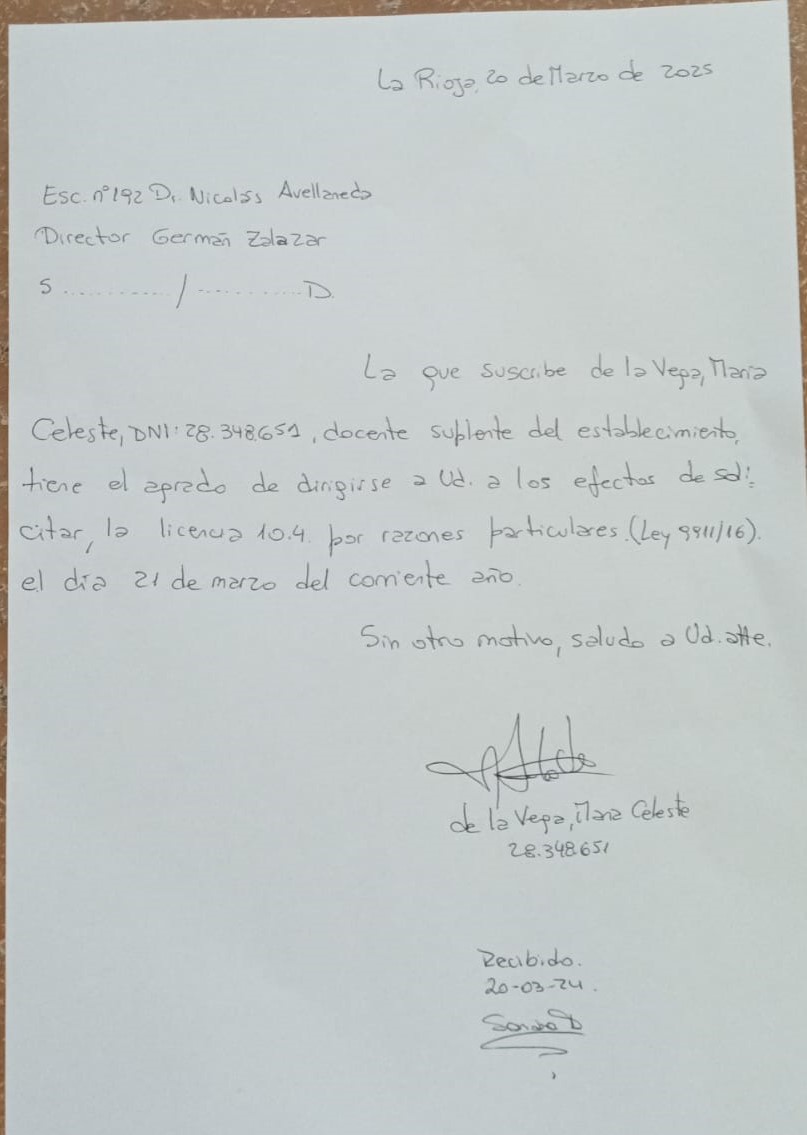 La Rioja, 20 de Marzo de 2025
Esc. nº192 Dr. Nicolás Avellaneda
Director Germán Zalazar
S ............ / ............ D.
La que suscribe de la Vega, María
Celeste, DNI: 28.348.651, docente suplente del establecimiento,
tiene el agrado de dirigirse a Ud. a los efectos de soli-
citar, la licencia 10.4. por razones particulares. (Ley 9911/16).
el día 21 de marzo del corriente año.
Sin otro motivo, saludo a Ud. atte.
de la Vega, María Celeste
28.348.651
Recibido.
20-03-24.